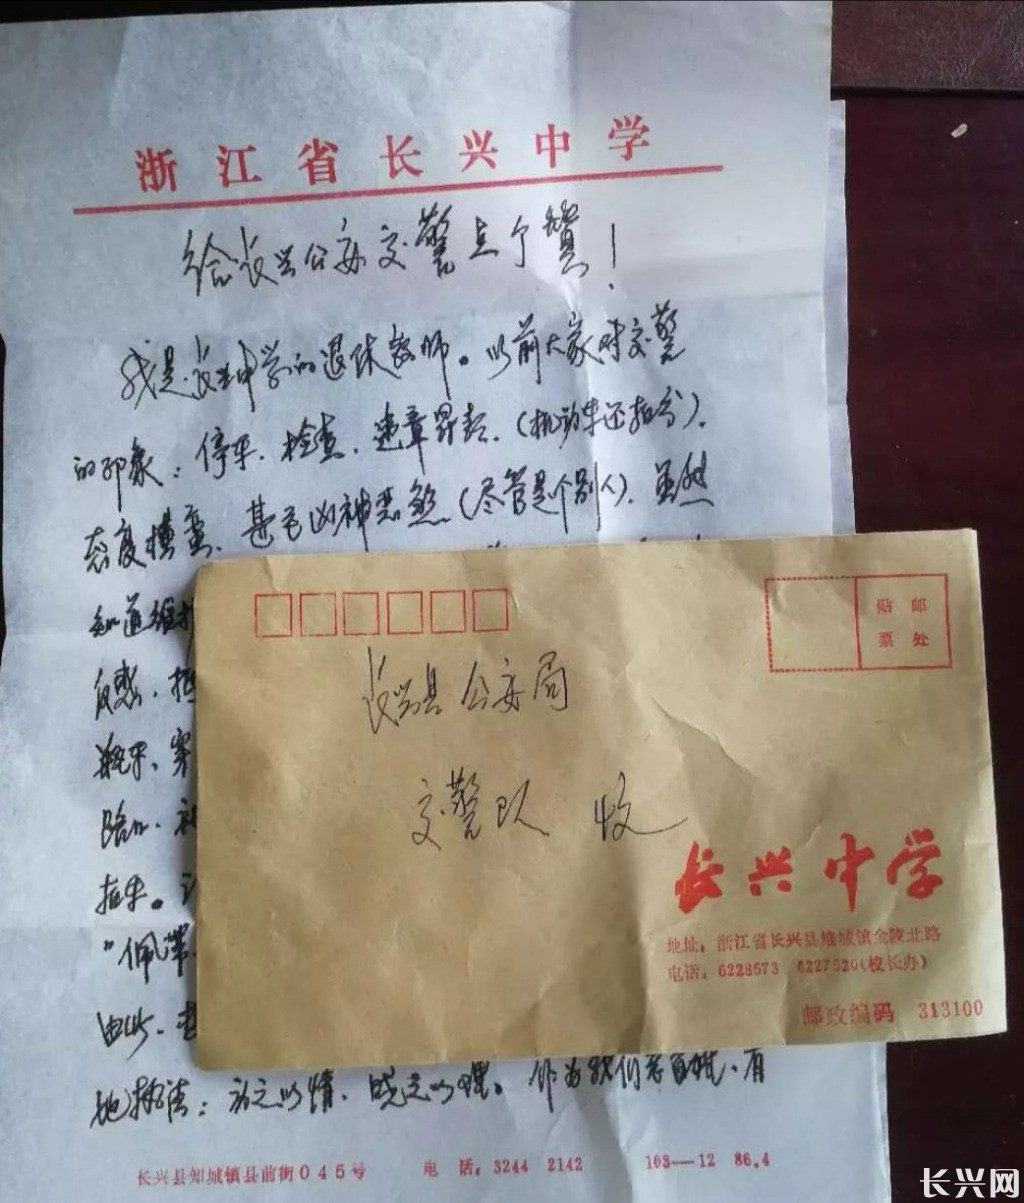 浙江省长兴中学
给长兴公安交警点个赞！
我是长兴中学的退休教师。以前大家对交警
的印象：停车、检查、违章罚款、(机动车还扣分)、
态度横蛮、甚至凶神恶煞(尽管是个别人)、虽然
知道维护
反感、
路口、
"佩带
由此、
地执法：动之以情、晓之以理。作为我们老百姓、有
长兴县知城镇县前街045号 电话：3244 2142 103—12 86.4
贴邮
票处
长兴县公安局
交警队 收
长兴中学
地址：浙江省长兴县雉城镇金陵北路
电话：6228573 6227520(校长办)
邮政编码 313100
长兴网